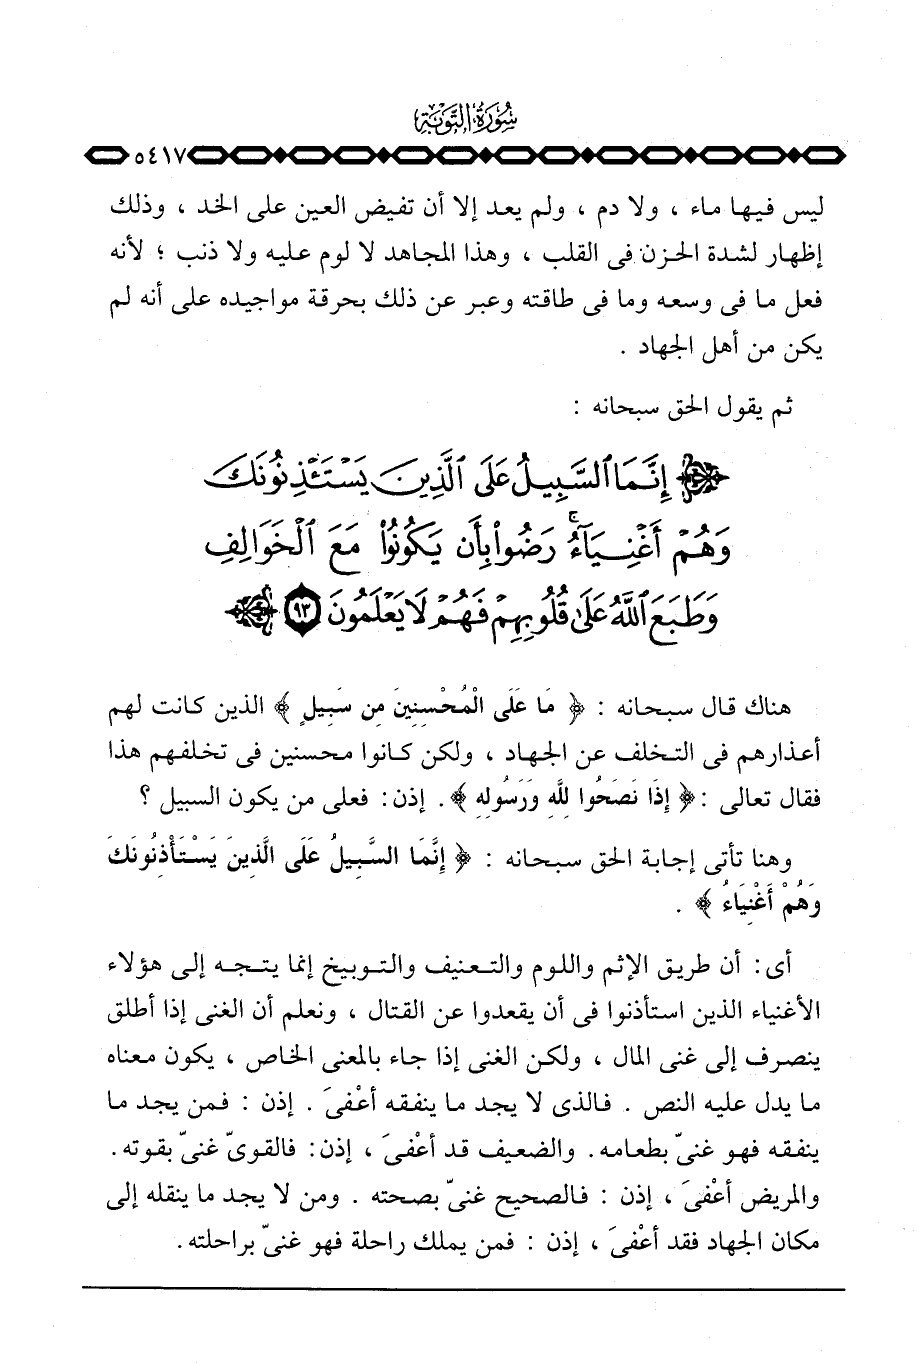 سُورَةُ التَّوْبَةِ
٥٤١٧
ليس فيها ماء ، ولا دم ، ولم يعد إلا أن تفيض العين على الخد ، وذلك
إظهار لشدة الحزن فى القلب ، وهذا المجاهد لا لوم عليه ولا ذنب ؛ لأنه
فعل ما فى وسعه وما فى طاقته وعبر عن ذلك بحرقة مواجيده على أنه لم
يكن من أهل الجهاد .
ثم يقول الحق سبحانه :
إِنَّمَا ٱلسَّبِيلُ عَلَى ٱلَّذِينَ يَسْتَـْٔذِنُونَكَ
وَهُمْ أَغْنِيَآءُ ۚ رَضُوا۟ بِأَن يَكُونُوا۟ مَعَ ٱلْخَوَالِفِ
وَطَبَعَ ٱللَّهُ عَلَىٰ قُلُوبِهِمْ فَهُمْ لَا يَعْلَمُونَ ٩٣
هناك قال سبحانه : ﴿ مَا عَلَى الْمُحْسِنِينَ مِن سَبِيلٍ ﴾ الذين كانت لهم
أعذارهم فى التخلف عن الجهاد ، ولكن كانوا محسنين فى تخلفهم هذا
فقال تعالى : ﴿ إِذَا نَصَحُوا لِلَّهِ وَرَسُولِهِ ﴾ . إذن : فعلى من يكون السبيل ؟
وهنا تأتى إجابة الحق سبحانه : ﴿ إِنَّمَا السَّبِيلُ عَلَى الَّذِينَ يَسْتَأْذِنُونَكَ
وَهُمْ أَغْنِيَاءُ ﴾ .
أى : أن طريق الإثم واللوم والتعنيف والتوبيخ إنما يتجه إلى هؤلاء
الأغنياء الذين استأذنوا فى أن يقعدوا عن القتال ، ونعلم أن الغنى إذا أطلق
ينصرف إلى غنى المال ، ولكن الغنى إذا جاء بالمعنى الخاص ، يكون معناه
ما يدل عليه النص . فالذى لا يجد ما ينفقه أعْفىَ . إذن : فمن يجد ما
ينفقه فهو غنىّ بطعامه . والضعيف قد أعْفىَ ، إذن : فالقوىّ غنىّ بقوته .
والمريض أعْفىَ ، إذن : فالصحيح غنىّ بصحته . ومن لا يجد ما ينقله إلى
مكان الجهاد فقد أعْفىَ ، إذن : فمن يملك راحلة فهو غنىّ براحلته .